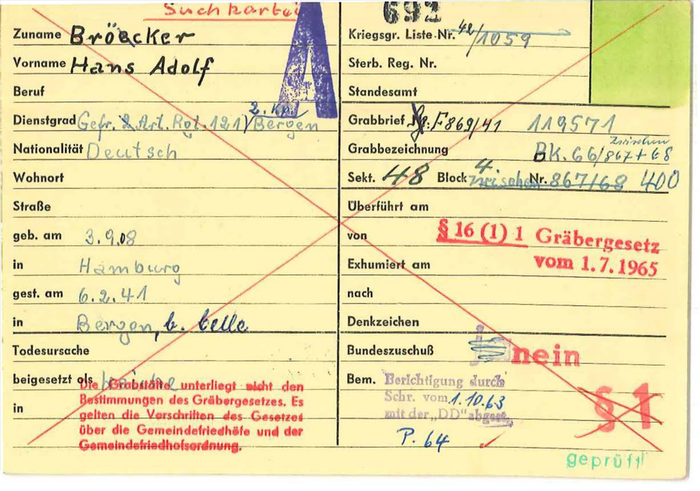 Suchkartei
Zuname Bröecker
Vorname Hans Adolf
Beruf
Dienstgrad Gefr. 2. Art. Rgt. 121/Bergen
Nationalität Deutsch
Wohnort
Straße
geb. am 3.9.08
in Hamburg
gest. am 6.2.41
in Bergen, b. Celle
Todesursache
beigesetzt als
in
Die Grabstätte unterliegt nicht den
Bestimmungen des Gräbergesetzes. Es
gelten die Vorschriften des Gesetzes
über die Gemeindefriedhöfe und der
Gemeindefriedhofsordnung.
692
Kriegsgr. Liste Nr. 42/1059
Sterb. Reg. Nr.
Standesamt
Grabbrief F869/41 119571
zwischen
Grabbezeichnung BK. 66/867+68
Sekt. 48 Block 4 zwischen Nr. 867/68 400
Überführt am
von
§ 16 (1) 1 Gräbergesetz
vom 1.7.1965
Exhumiert am
nach
Denkzeichen
Bundeszuschuß nein
Bem. Berichtigung durch
Schr. vom 1.10.63
mit der „DD" abgest.
P. 64
§ 1
geprüft